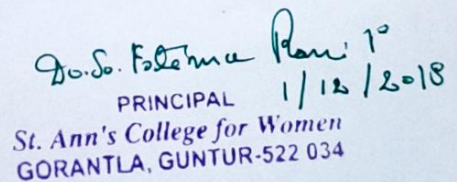 Dr. Sr. Fatima Rani P
1/12/2018
PRINCIPAL
St. Ann's College for Women
GORANTLA, GUNTUR-522 034